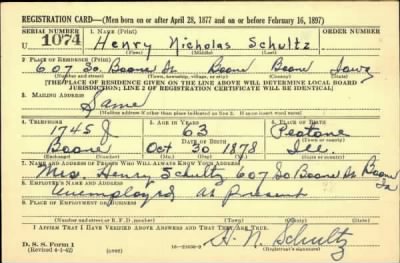 REGISTRATION CARD—(Men born on or after April 28, 1877 and on or before February 16, 1897)
SERIAL NUMBER 1. NAME (Print) ORDER NUMBER
U 1074 Henry Nicholas Schultz
(First) (Middle) (Last)
2. PLACE OF RESIDENCE (Print)
607 So. Boone St. Boone Boone Iowa
(Number and street) (Town, township, village, or city) (County) (State)
[THE PLACE OF RESIDENCE GIVEN ON THE LINE ABOVE WILL DETERMINE LOCAL BOARD
JURISDICTION; LINE 2 OF REGISTRATION CERTIFICATE WILL BE IDENTICAL]
3. MAILING ADDRESS
Same
[Mailing address if other than place indicated on line 2. If same insert word same]
4. TELEPHONE 5. AGE IN YEARS 6. PLACE OF BIRTH
1745 J 63 Peotone
DATE OF BIRTH (Town or county)
Boone Oct 30 1878 Ill.
(Exchange) (Number) (Mo.) (Day) (Yr.) (State or country)
7. NAME AND ADDRESS OF PERSON WHO WILL ALWAYS KNOW YOUR ADDRESS
Mrs. Henry Schultz 607 So Boone St Boone Ia
8. EMPLOYER'S NAME AND ADDRESS
Unemployed at Present
9. PLACE OF EMPLOYMENT OR BUSINESS
(Number and street or R. F. D. number) (Town) (County) (State)
I AFFIRM THAT I HAVE VERIFIED ABOVE ANSWERS AND THAT THEY ARE TRUE.
D. S. S. Form 1
(Revised 4-1-42) H. N. Schultz
(Registrant's signature)